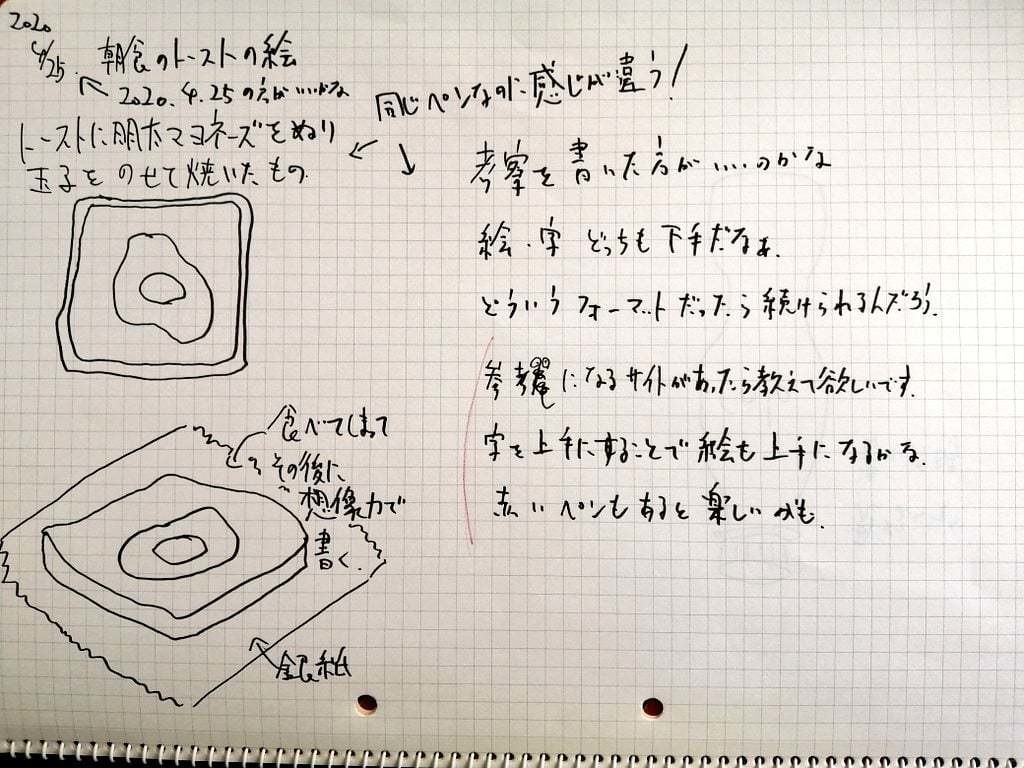 2020
4/25. 朝食のトーストの絵
2020.4.25の方がいいかな
トーストに明太マヨネーズをぬり
玉子をのせて焼いたもの.
同じペンなのに感じが違う!
考察を書いた方がいいのかな
絵・字 どっちも下手だなぁ.
どういうフォーマットだったら続けられるんだろう.
参考になるサイトがあったら教えて欲しいです.
字を上手にすることで絵も上手になるかな.
赤いペンもあると楽しいかも.
食べてしまって
その後に
想像力で
書く.
銀紙